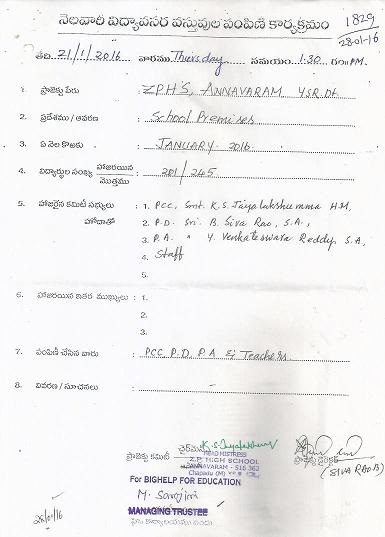 నెలవారీ విద్యావసర వస్తువుల పంపిణీ కార్యక్రమం
1829
28-01-16
తేది 21/1/2016 వారము Thursday సమయం 1:30 గం॥ PM.
1. ప్రాజెక్టు పేరు : Z.P.H.S, ANNAVARAM YSR Dt.
2. ప్రదేశము / ఆవరణ : School Premises
3. ఏ నెల కొఱకు : JANUARY 2016.
4. విద్యార్థుల సంఖ్య హాజరయిన / మొత్తము : 201/245
5. హాజరైన కమిటీ సభ్యులు : 1. PCC, Smt. K.S. Jayalakshumma HM,
హోదాతో 2. P.D. Sri. B. Siva Rao, S.A.,
3. P.A. " Y. Venkateswara Reddy, S.A,
4. Staff
5.
6. హాజరయిన ఇతర ముఖ్యులు : 1.
2.
3.
7. పంపిణీ చేసిన వారు : PCC P.D, P.A & Teachers
8. వివరణ / సూచనలు : -
చైర్మెన్
ప్రాజెక్టు కమిటీ
HEAD MISTRESS
Z.P. HIGH SCHOOL
ANNAVARAM - 516 362
Chapadu (M)
ప్రాజెక్టు డైరెక్టర్
(SIVA RAO B)
For BIGHELP FOR EDUCATION
M. Sarojini
MANAGING TRUSTEE
హై. కార్యాలయము నందు